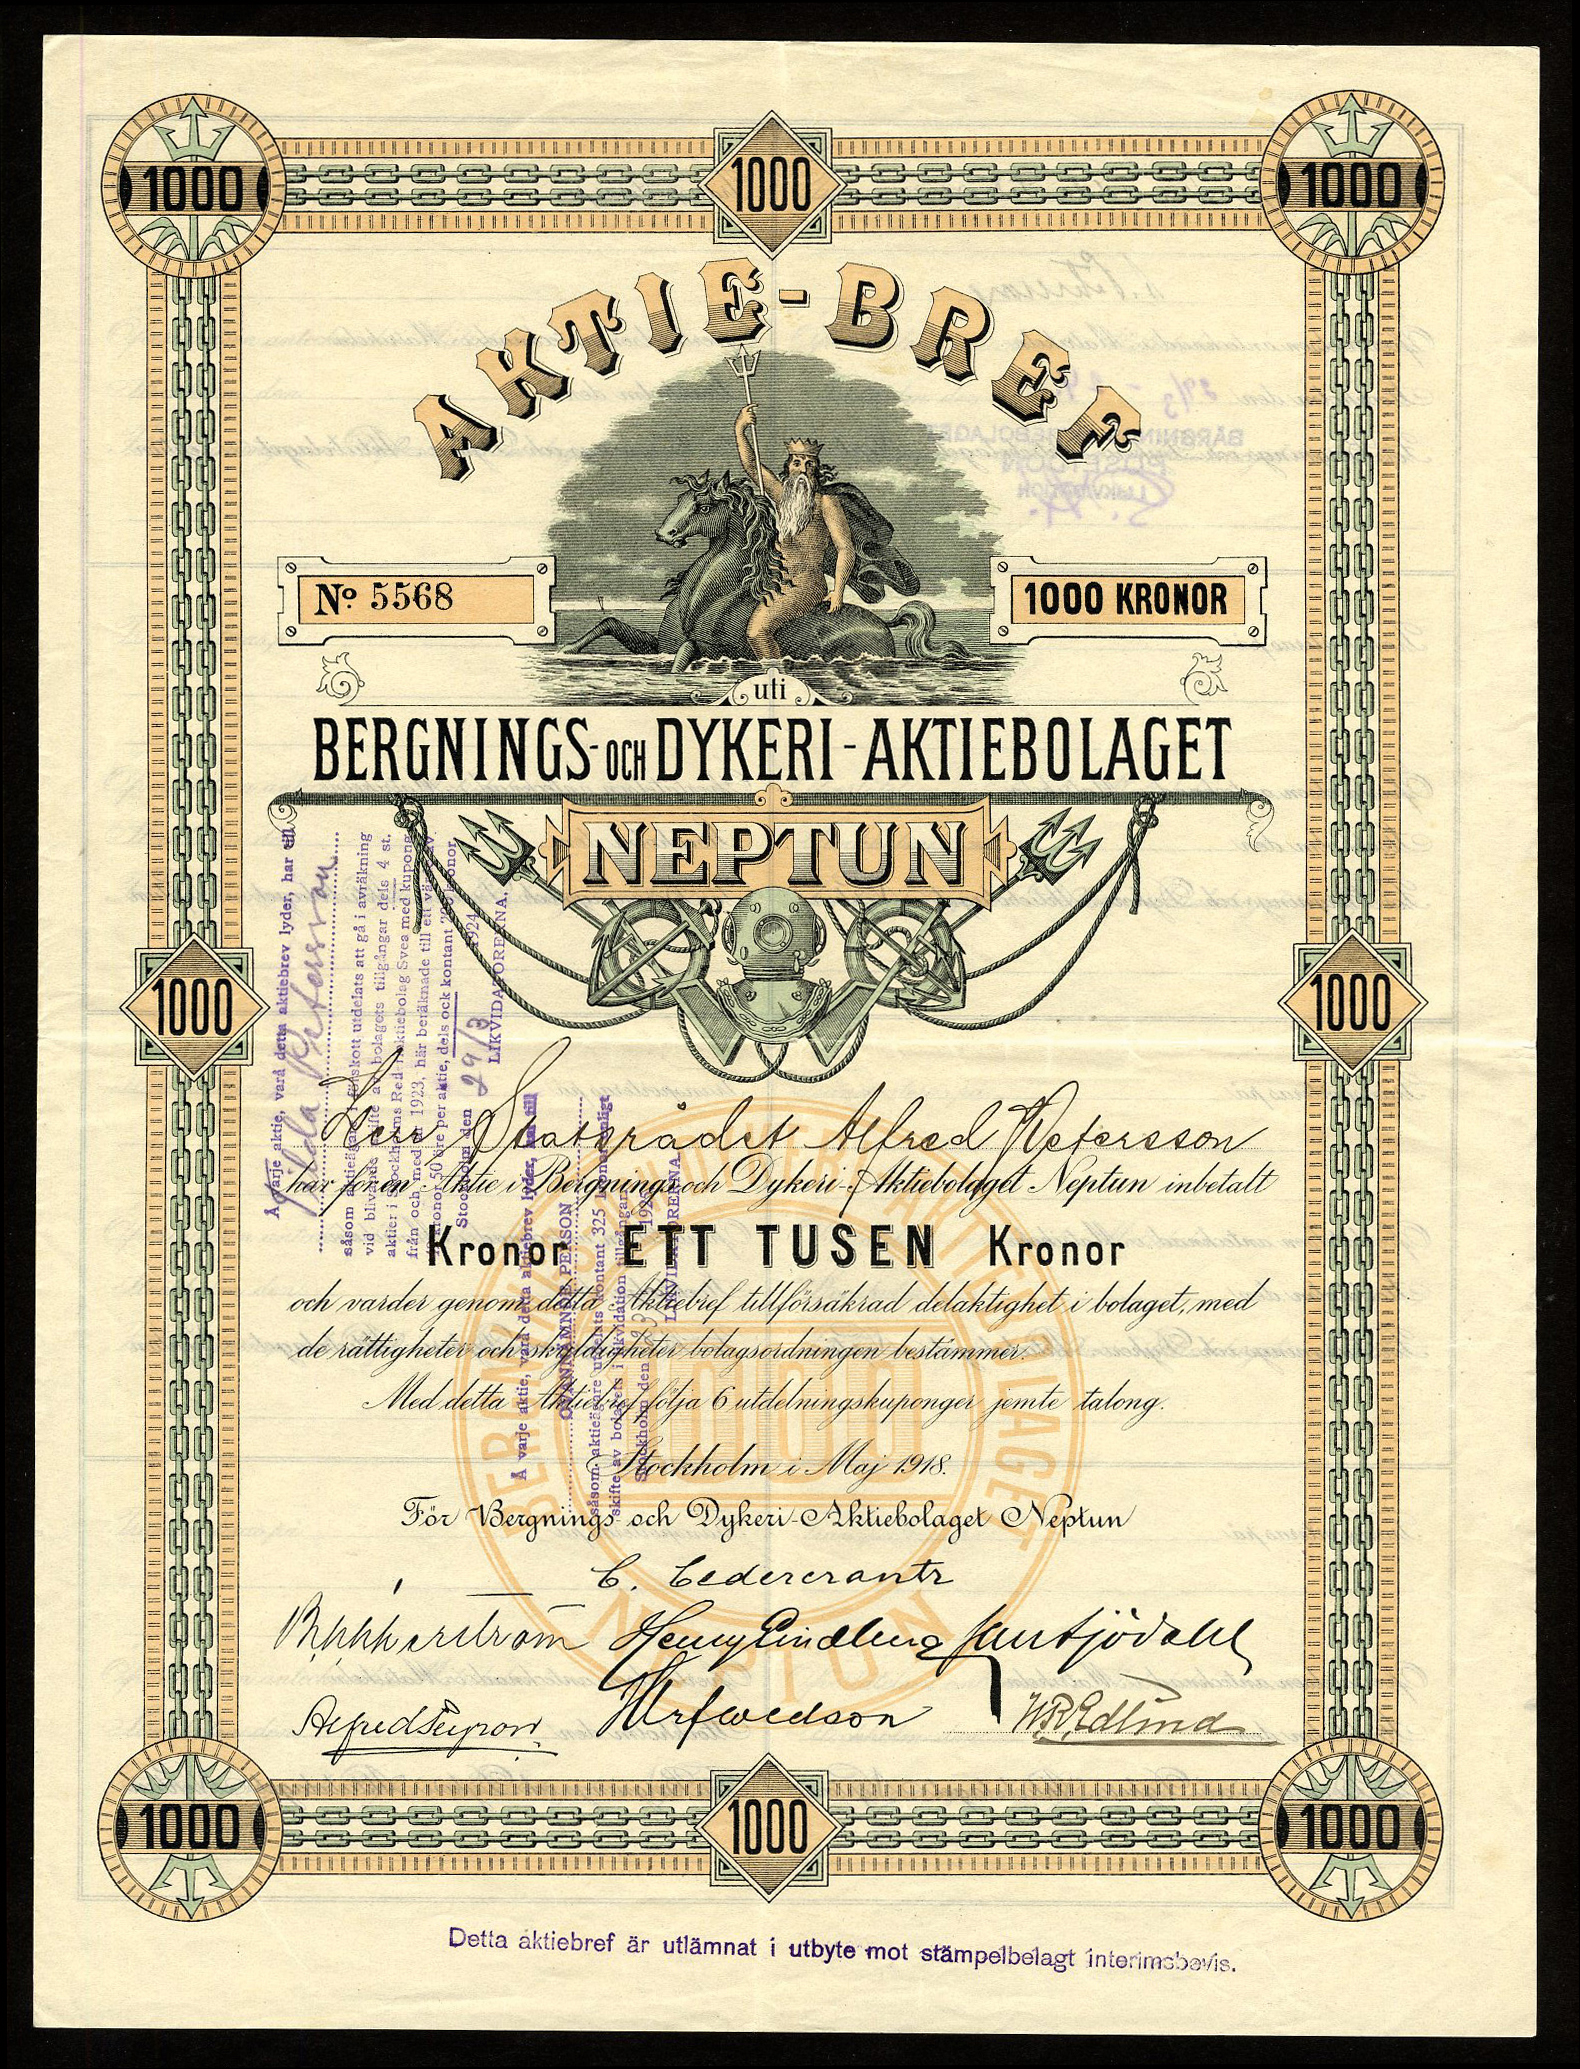 1000 1000 1000
AKTIE-BREF
No. 5568
1000 KRONOR
uti
BERGNINGS- OCH DYKERI-AKTIEBOLAGET
NEPTUN
1000 1000
Herr Statsrådet Alfred Petersson
har för en Aktie i Bergnings och Dykeri-Aktiebolaget Neptun inbetalt
Kronor ETT TUSEN Kronor
och varder genom detta Aktiebref tillförsäkrad delaktighet i bolaget, med
de rättigheter och skyldigheter bolagsordningen bestämmer.
Med detta Aktiebref följa 6 utdelningskuponger jemte talong.
Stockholm i Maj 1918.
För Bergnings- och Dykeri-Aktiebolaget Neptun
C. Cedercrantz
Henry Lindberg
Arfwedson W.R. Edlind
1000 1000 1000
Detta aktiebref är utlämnat i utbyte mot stämpelbelagt interimsbevis.
Å varje aktie, varå detta aktiebrev lyder, har till
Hilda Petersson
såsom aktieägare i förskott utdelats att gå i avräkning
vid blivande skifte av bolagets tillgångar dels 4 st.
aktier i Stockholms Rederiaktiebolag Svea med kupong
från och med år 1923, här beräknade till ett värde av
kronor 50 öre per aktie, dels ock kontant kronor.
Stockholm den 29/3 1924
LIKVIDATORERNA.
Å varje aktie, varå detta aktiebrev lyder, har till
OVANNÄMNDE PERSON
såsom aktieägare utdelats kontant 325 kronor
skifte av bolagets i likvidation tillgångar.
Stockholm den
LIKVIDATORERNA.
BERGNINGS OCH DYKERI AKTIEBOLAGET
NEPTUN
1000